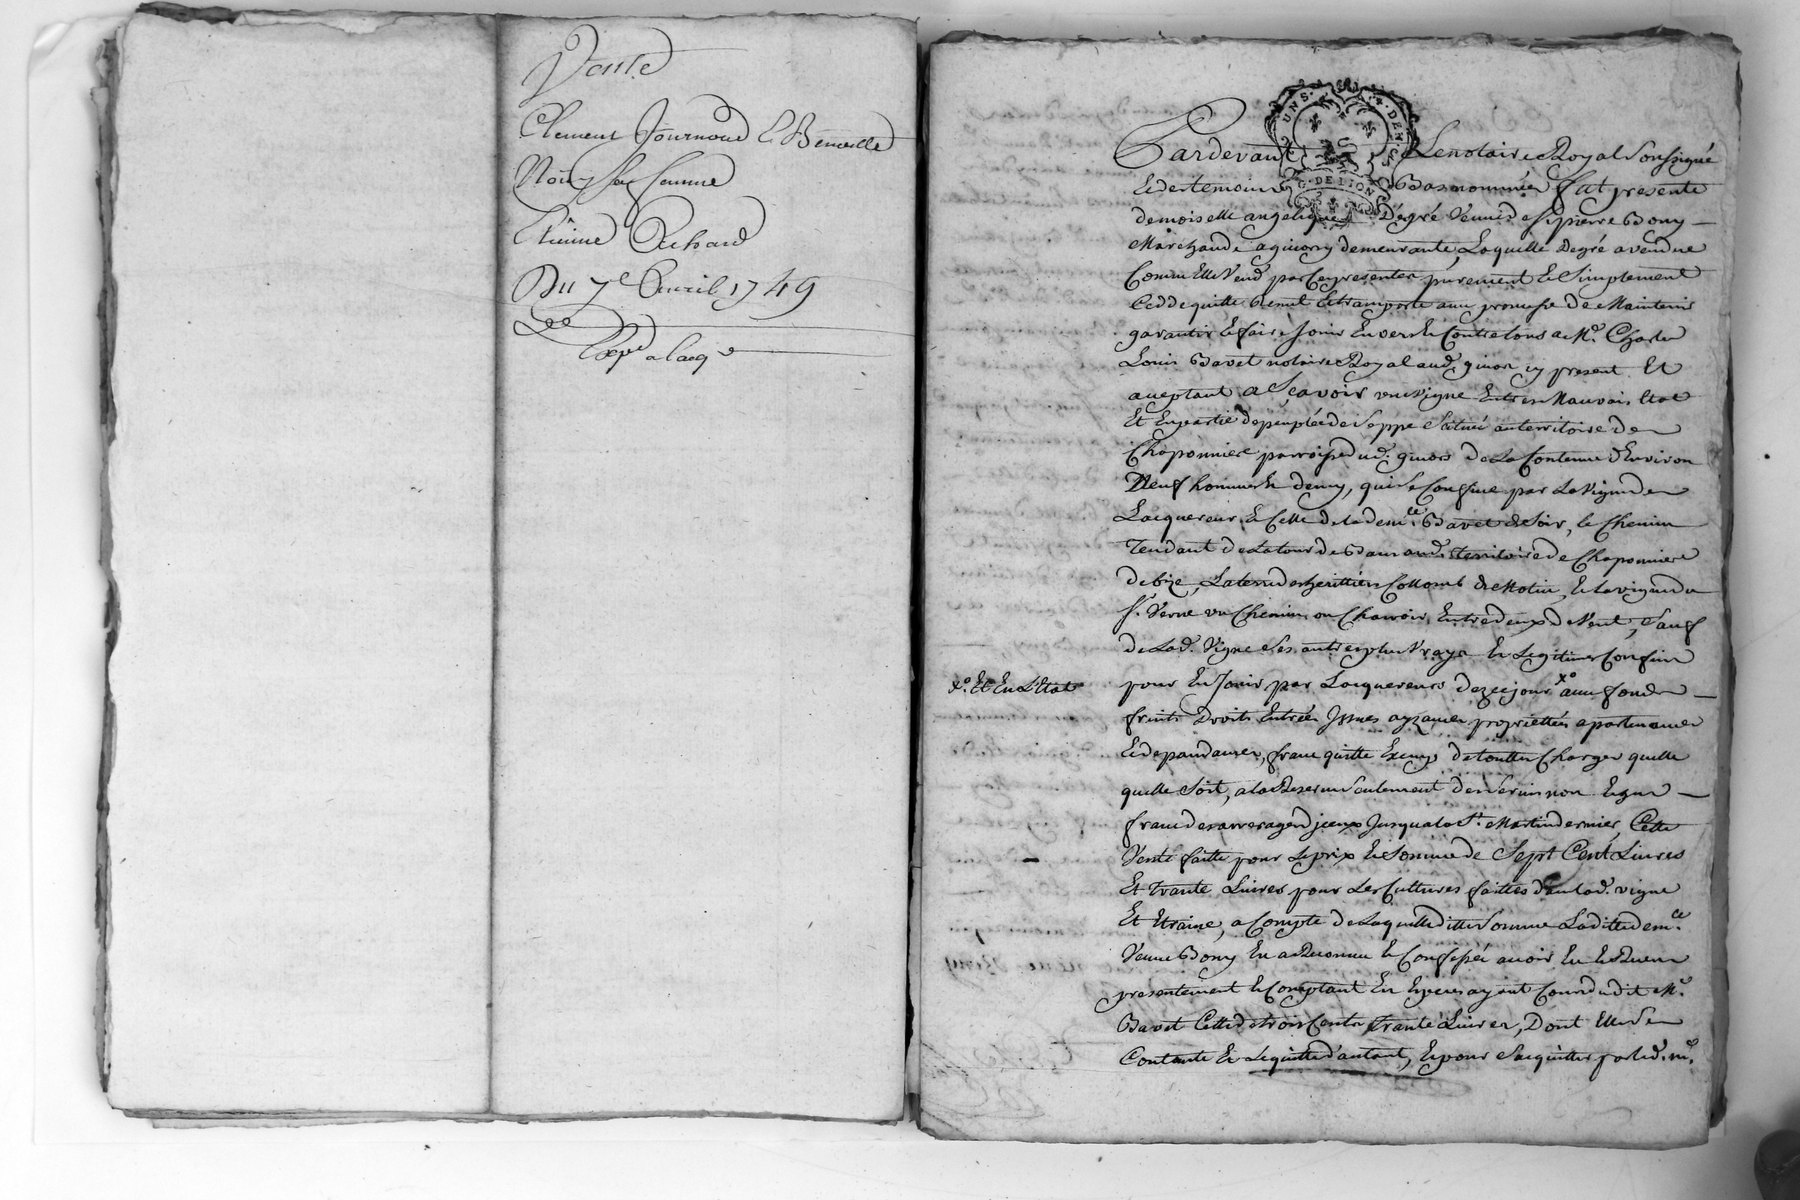 Vente
Clement Journoud & Benoitte
Noury sa femme
Etienne Richard
Du 7e Avril 1749
Expé a l'acqr
UNS. 4. DEN.
G. DE LION
Pardevant Le notaire Royal Soussigné
Et des temoins Bas nommés fut presente
demoiselle angelique Degré Veuve de Sr pierre Bony
Marchande a givors y demeurante, Laquelle Degré a vendu
Comme Elle Vend par ces presentes purement Et Simplement
Cedde quitte Remet Et transporte avec promesse de Maintenir
garantir Et faire Jouir Envers Et Contre tous a Me. Charles
Louis Bavet notaire Royal aud. givors icy present Et
aceptant a Sçavoir une Vigne En tres Mauvais Etat
Et En partie depeuplée de Seppe Scitué au territoire de
Chaponniere parroisse dud. givors de La Contenue d'Environ
Neuf hommes Et demy, qui Se Confine par La Vigne de
L'acquereur Et Celle de la demlle Bavet de Soir, le Chemin
Tendant de La tour de Bans aud. territoire de Chaponniere
de bize, La terre des herittiers Collomb de Matin, Et La vigne du
Sr. Verne un Chemin ou Charroir Entre deux de Vent, Sauf
de Lad. Vigne Ses autres plus Vrays Et Legitimes Confins
xo. Et En L'Etat
pour En Jouir par L'acquereur dez ce jour xo avec fonds
fruits Droits Entrées Issues ayzances proprietés apartenances
Et dependances, franc quitte Exemp de touttes Charges quelle
quelle Soit, a la Reserve Seulement des Servis non Legue
franc des arrerages d'iceux Jusqu'a la St. Martin dernier, Cette
Vente faitte pour Le prix Et Somme de Sept Cent Livres
Et trante Livres pour Les Cultures faittes dans lad. vigne
Et Etraine, a Compte de Laquelle ditte Somme Laditte demlle
Veuve Bony En a Reconnu Et Confessé avoir Eu Et Receu
presentement Et Comptant En Especes ayant Cours dudit Me.
Bavet Celle de trois Cents trante Livres, Dont Elle Se
Contente Et L'equitte d'autant, Et pour S'acquitter par led. Me.